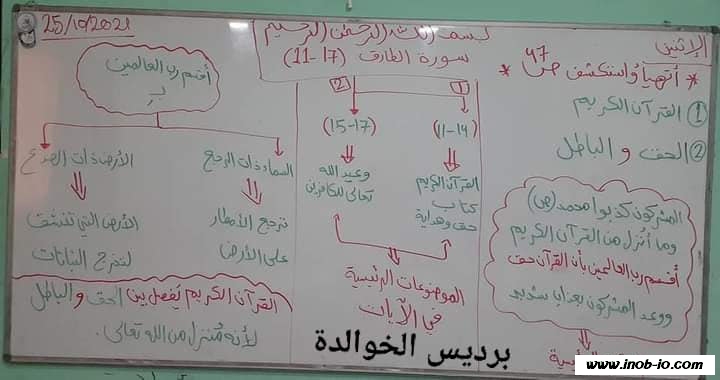 الإثنين
25/10/2021
بسم الله الرحمن الرحيم
سورة الطارق (17-11)
* أتهيأ وأستكشف ص 47 *
① القرآن الكريم
② الحق و الباطل
المشركون كذبوا محمد (ص)
وما أنزل من القرآن الكريم
أقسم رب العالمين بأن القرآن حق
ووعد المشركون بعذاب شديد
1
(11-14)
القرآن الكريم
كتاب
حق وهداية
2
(15-17)
وعيد الله
تعالى للكافرين
الموضوعات الرئيسية
في الآيات
أقسم رب العالمين
بـِ
السماء ذات الرجع
ترجع الأمطار
على الأرض
الأرض ذات الصدع
الأرض التي تنشق
لتخرج النباتات
القرآن الكريم يفصل بين الحق و الباطل
لأنه مُنزل من الله تعالى.
برديس الخوالدة
www.inob-io.com